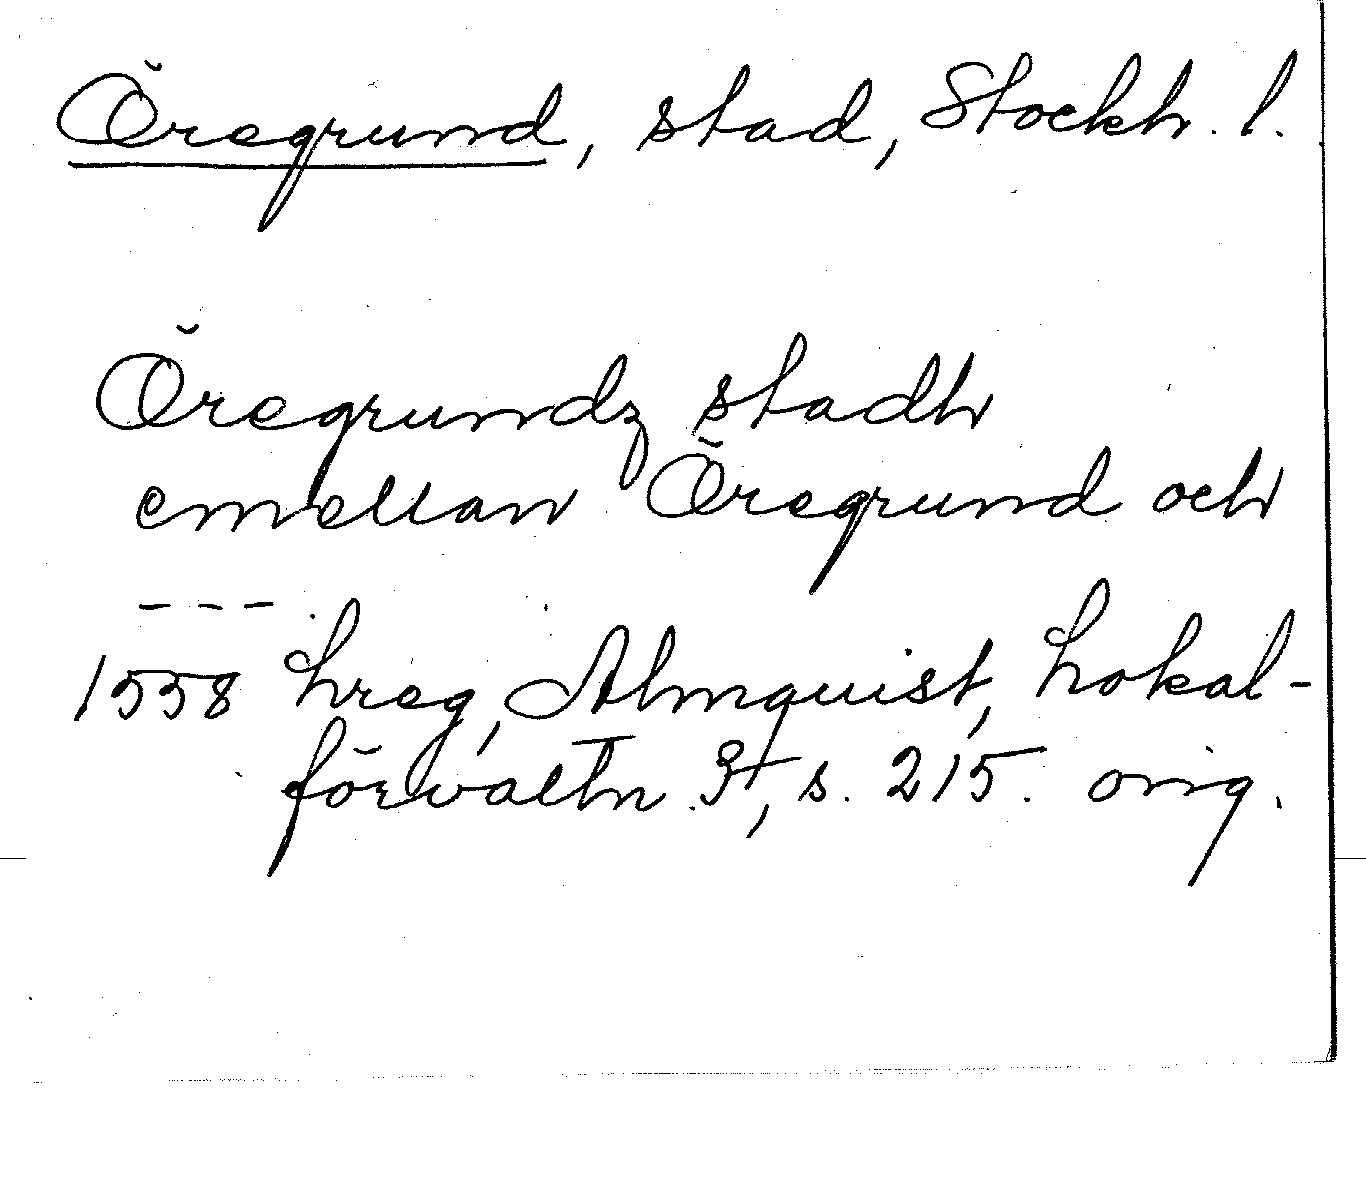 Öregrund, stad, Stockh. l.
Öregrundz stadh
emellan Öregrund och
---
1558 hreg, Almquist, Lokal-
förvaltn. 3, s. 215. orig.